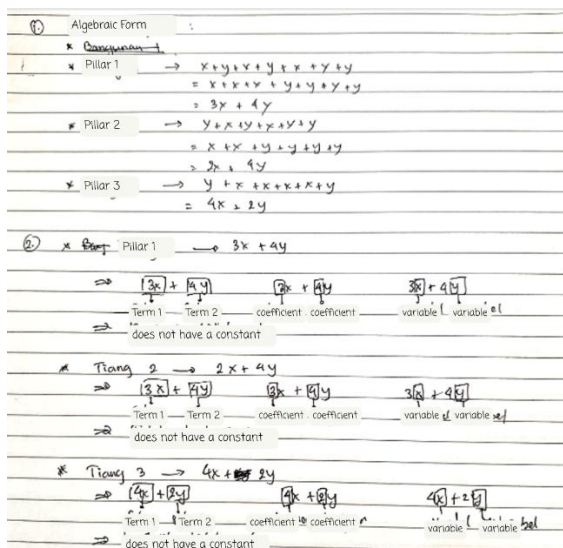 1. Algebraic Form :
* Bangunan 1
* Pillar 1 → x+y+x+y+x+y+y
= x+x+x+y+y+y+y
= 3x + 4y
* Pillar 2 → y+x+y+x+y+y
= x+x+y+y+y+y
= 2x + 4y
* Pillar 3 → y+x+x+x+x+y
= 4x + 2y
2. * Pillar 1 → 3x + 4y
⇒ 3x + 4y 3x + 4y 3x + 4y
Term 1 Term 2 coefficient coefficient variable variable
⇒ does not have a constant
* Tiang 2 → 2x + 4y
⇒ 3x + 4y 3x + 4y 3x + 4y
Term 1 Term 2 coefficient coefficient variable variable
⇒ does not have a constant
* Tiang 3 → 4x + 2y
⇒ 4x + 2y 4x + 2y 4x + 2y
Term 1 Term 2 coefficient coefficient variable variable
⇒ does not have a constant